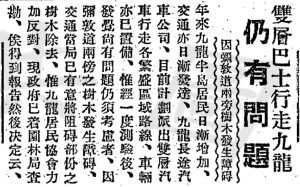 雙層巴士行走九龍
仍有問題
因彌敦道兩旁樹木發生障碍
年來九龍半島居民日漸增加、
交通亦日漸發達、九龍長途汽
車公司、目前計劃派出雙層汽
車行走各繁盛區域路線、車輛
亦已置備、惟經一度測驗後、
發覺尚有問題仍須考慮者、因
彌敦道兩傍之樹木發生障碍、
交通當局已有意將阻碍部份之
樹木除去、惟九龍居民協會力
加反對、現政府已着園林局查
勘、俟得到報告然後決定云、